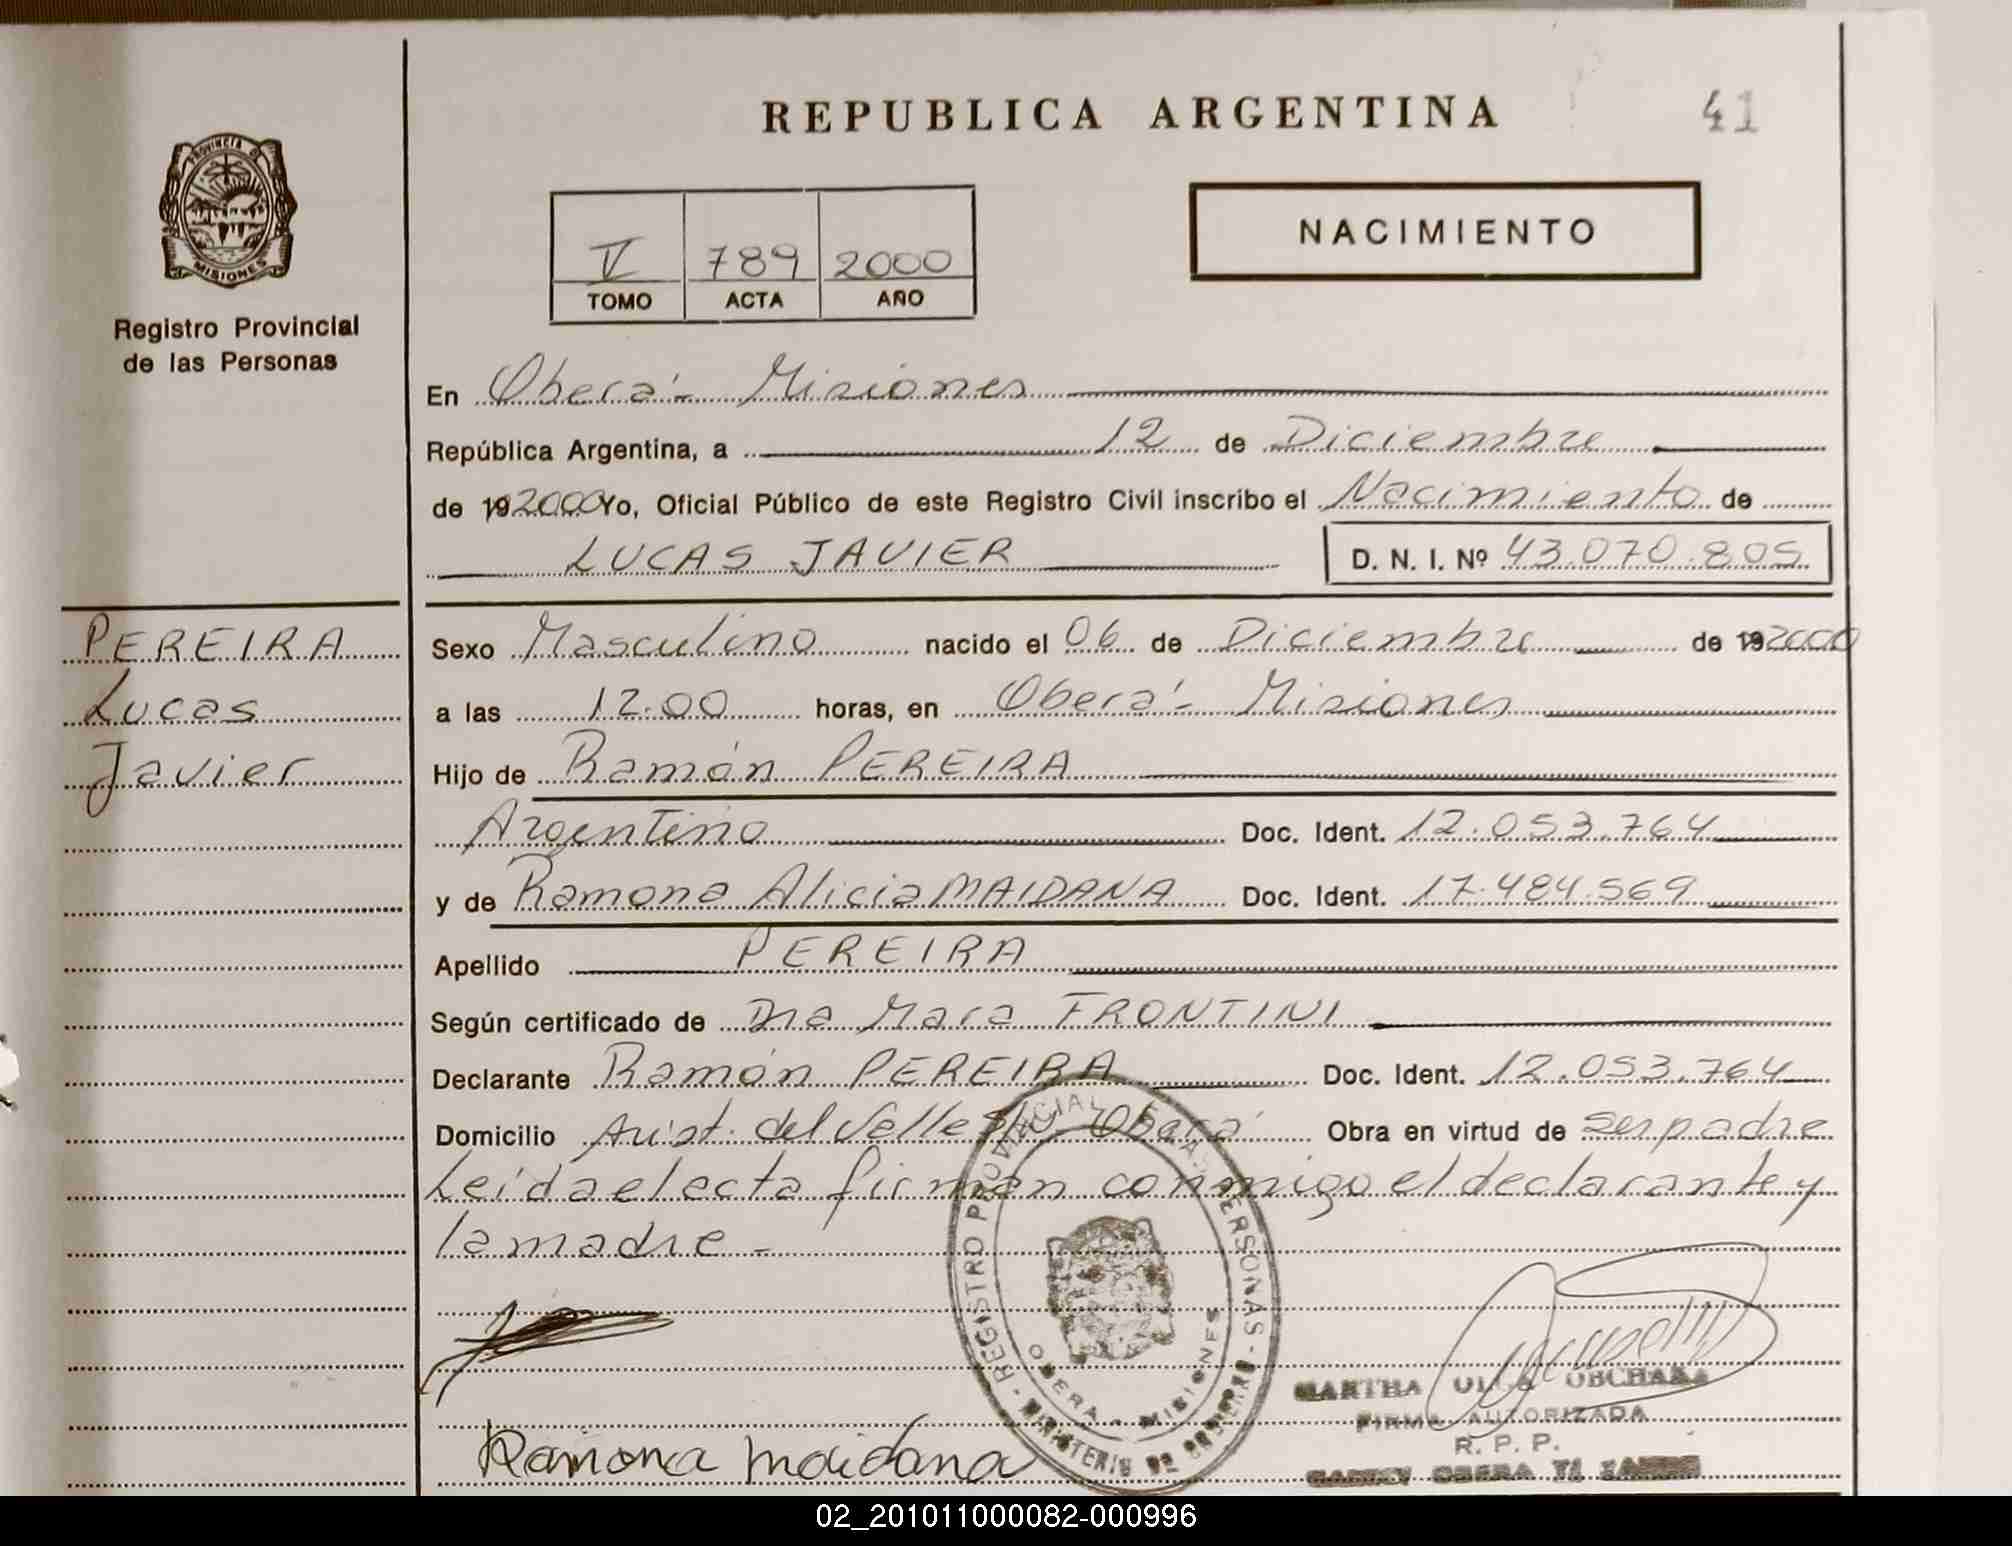 REPUBLICA ARGENTINA
41
PROVINCIA DE
MISIONES
Registro Provincial
de las Personas
V 789 2000
TOMO ACTA AÑO
NACIMIENTO
En Oberá - Misiones
República Argentina, a 12 de Diciembre
de 19 2000 Yo, Oficial Público de este Registro Civil inscribo el Nacimiento de
LUCAS JAVIER D. N. I. Nº 43.070.805
PEREIRA
Lucas
Javier
Sexo Masculino nacido el 06 de Diciembre de 19 2000
a las 12.00 horas, en Oberá - Misiones
Hijo de Ramón PEREIRA
Argentino Doc. Ident. 12.053.764
y de Ramona Alicia MAIDANA Doc. Ident. 17.484.569
Apellido PEREIRA
Según certificado de Dra Mara FRONTINI
Declarante Ramón PEREIRA Doc. Ident. 12.053.764
Domicilio Arist. del Valle Oberá Obra en virtud de ser padre
Leída el acta firman conmigo el declarante y
la madre -
REGISTRO PROVINCIAL DE LAS PERSONAS
OBERA - MISIONES
MINISTERIO DE GOBIERNO
MARTHA OLGA
FIRMA AUTORIZADA
R. P. P.
OBERA
Ramona Maidana
02_201011000082-000996